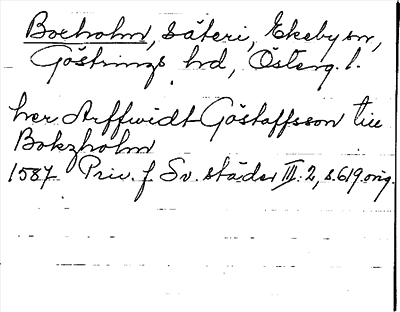 Boxholm, säteri, Ekeby sn,
Göstrings hd, Österg. l.
her Arffwidt Göstaffsson till
Bokzholm
1587 Priv. f. Sv. städer III:2, s. 619. orig.